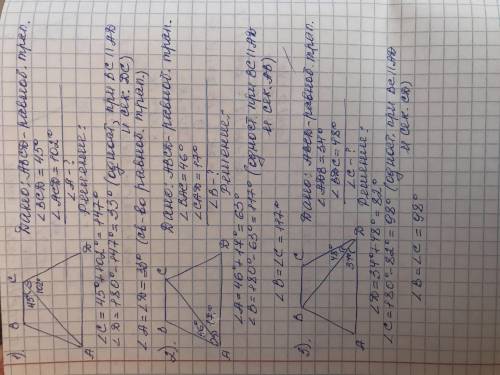 1).
B
C
45°
102°
A
D
Дано: ABCD - равноб. трап.
∠BCD = 45°
∠ACD = 102°
∠A - ?
Решение:
∠C = 45° + 102° = 147°
∠D = 180° - 147° = 33° (одност, при BC || AD
и сек. DC)
∠A = ∠D = 33° (св-во равноб. трап.)
2).
B
C
46°
17°
A
D
Дано: ABCD - равноб. трап.
∠BAC = 46°
∠CAD = 17°
∠B - ?
Решение:
∠A = 46° + 17° = 63°
∠B = 180° - 63° = 117° (одност. при BC || AD
и сек. AB)
∠B = ∠C = 117°
3).
B
C
48°
34°
A
D
Дано: ABCD - равноб. трап.
∠ADB = 34°
∠BDC = 48°
∠C - ?
Решение:
∠D = 34° + 48° = 82°
∠C = 180° - 82° = 98° (одност. при BC || AD
и сек. CD)
∠B = ∠C = 98°